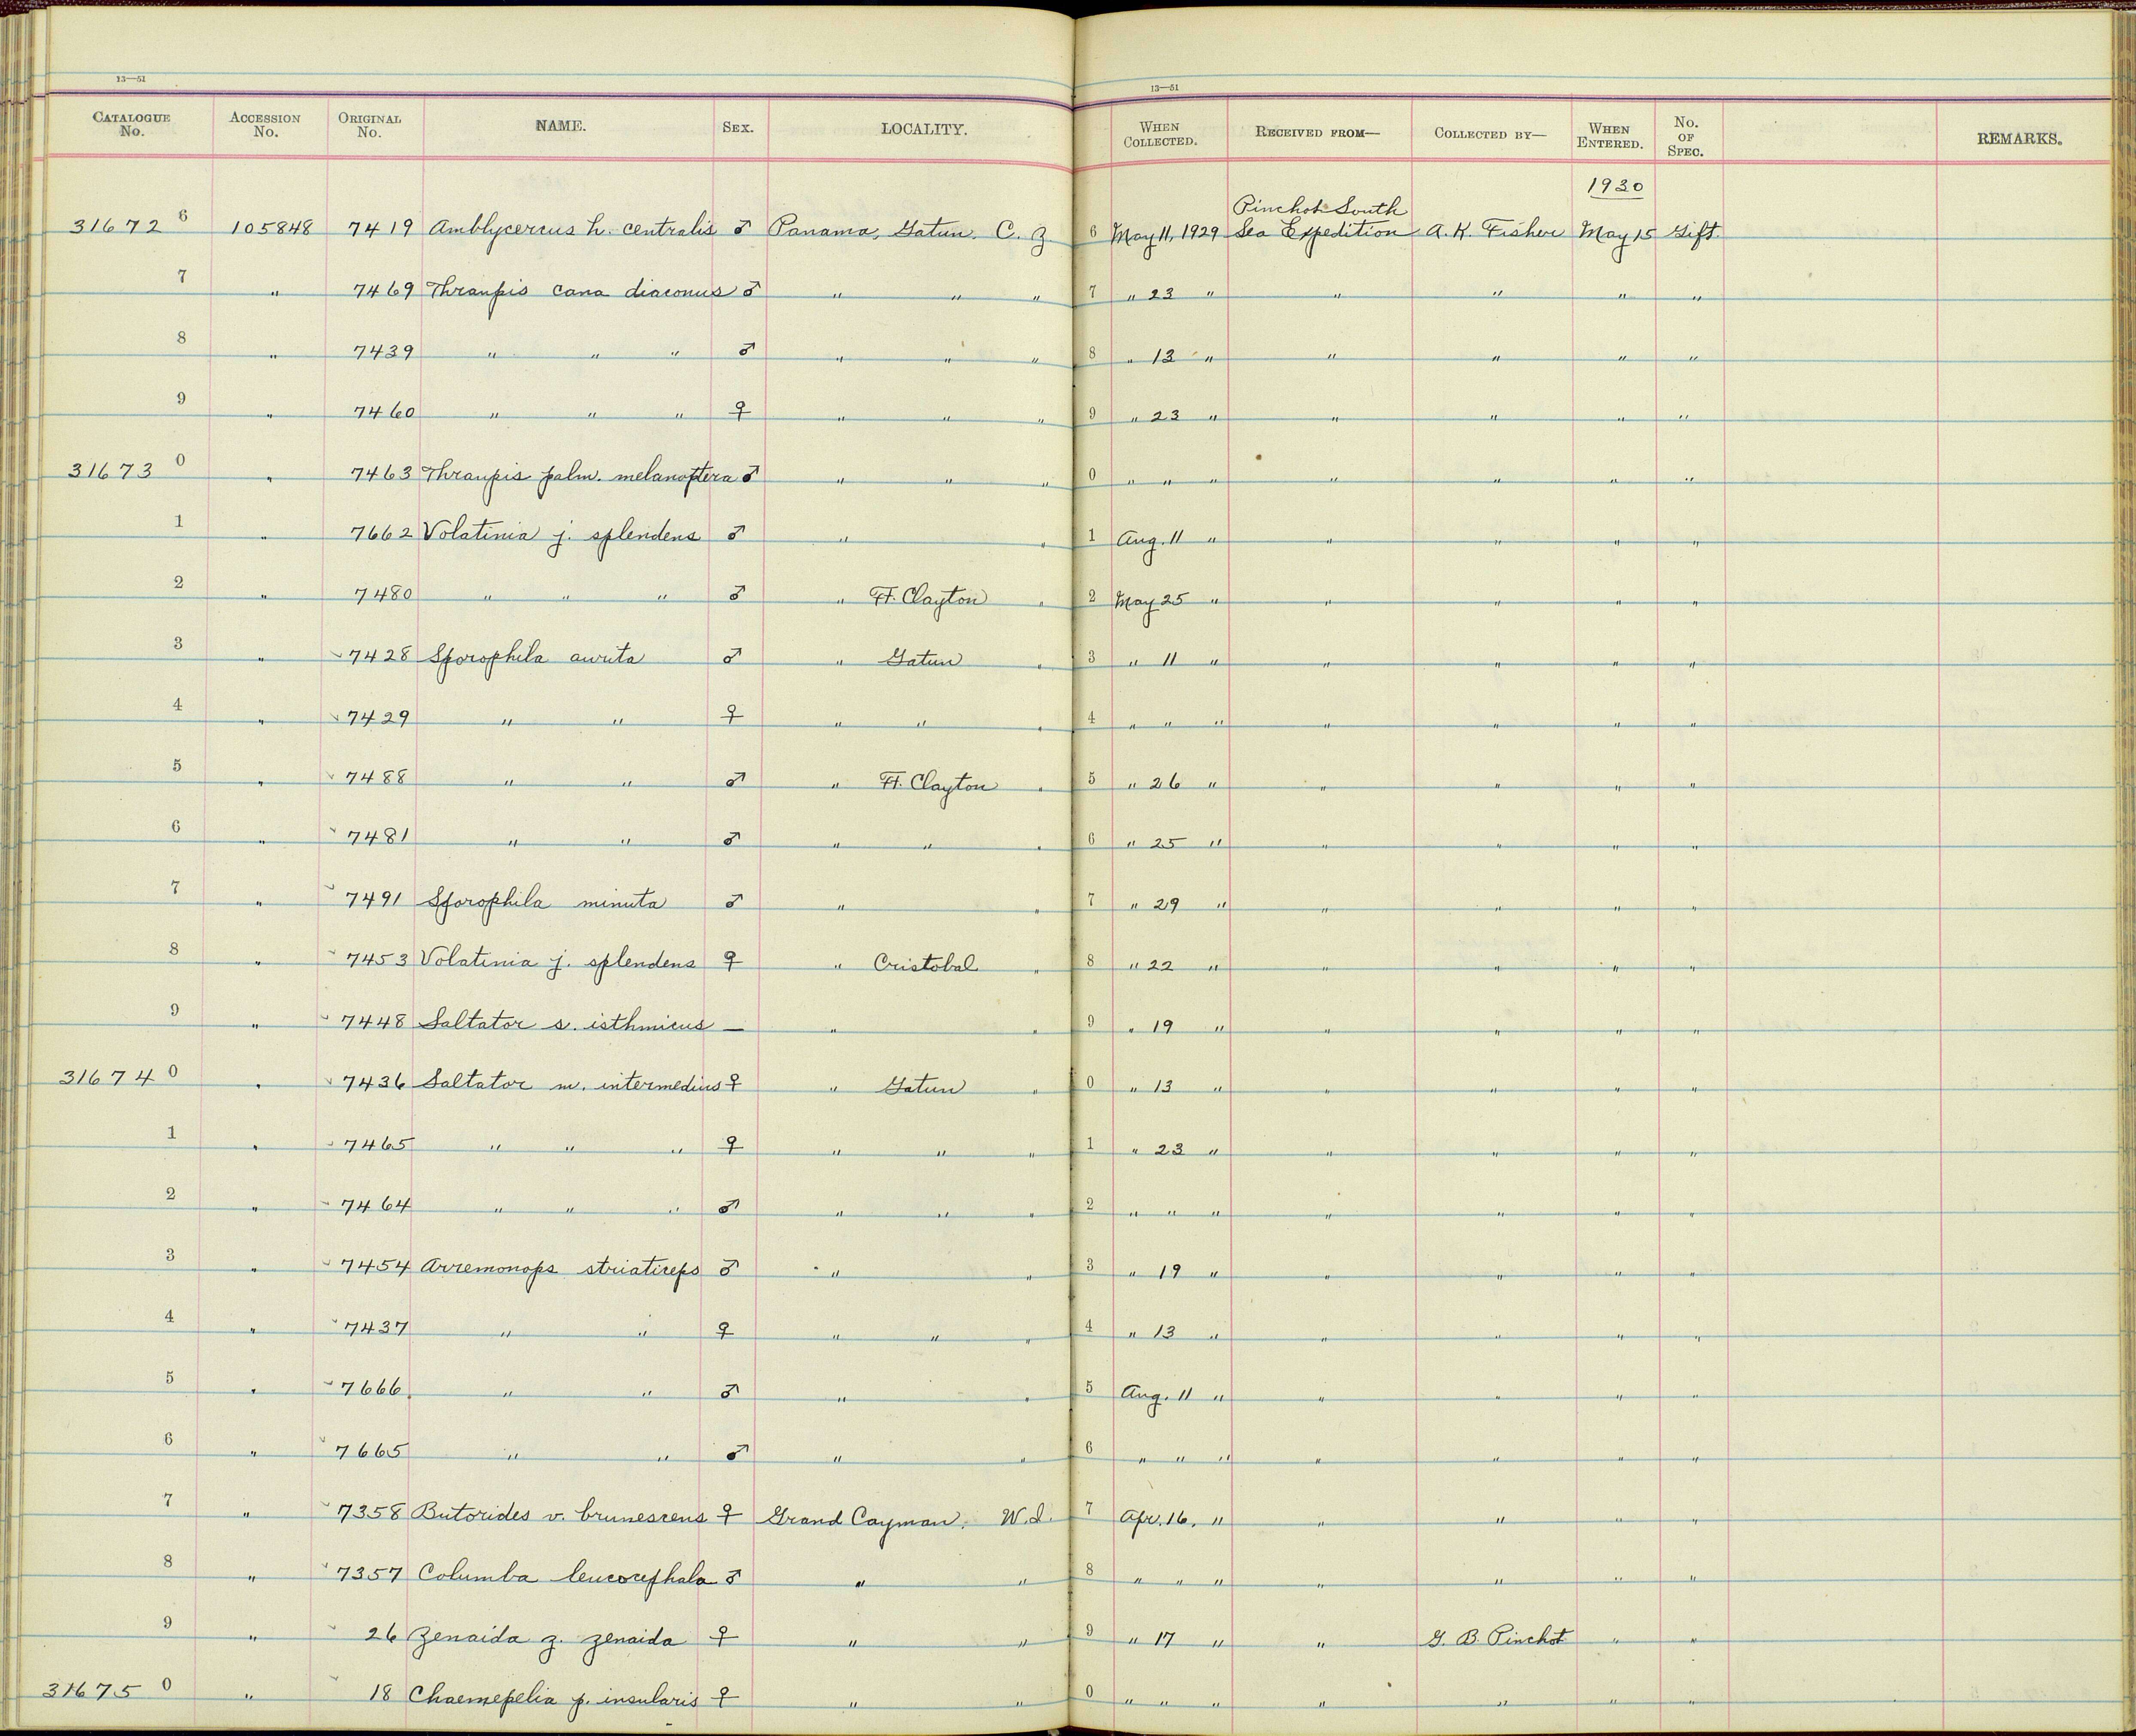 13—51
13—51
CATALOGUE No. ACCESSION No. ORIGINAL No. NAME. SEX. LOCALITY. WHEN COLLECTED. RECEIVED FROM— COLLECTED BY— WHEN ENTERED. No. OF SPEC. REMARKS.
1930
31672 6 105848 7419 Amblycercus h. centralis ♂ Panama, Gatun. C. Z 6 May 11, 1929 Pinchot South Sea Expedition A. K. Fisher May 15 Gift.
7 " 7469 Thraupis cana diaconus ♂ " " " 7 " 23 " " " " "
8 " 7439 " " " ♂ " " " 8 " 13 " " " " "
9 " 7460 " " " ♀ " " " 9 " 23 " " " " "
31673 0 " 7463 Thraupis palm. melanoptera ♂ " " " 0 " " " " " " "
1 " 7662 Volatinia j. splendens ♂ " " 1 Aug. 11 " " " " "
2 " 7480 " " " ♂ " Ft. Clayton " 2 May 25 " " " " "
3 " 7428 Sporophila aurita ♂ " Gatun " 3 " 11 " " " " "
4 " 7429 " " ♀ " " " 4 " " " " " " "
5 " 7488 " " ♂ " Ft. Clayton " 5 " 26 " " " " "
6 " 7481 " " ♂ " " " 6 " 25 " " " " "
7 " 7491 Sporophila minuta ♂ " " 7 " 29 " " " " "
8 " 7453 Volatinia j. splendens ♀ " Cristobal " 8 " 22 " " " " "
9 " 7448 Saltator s. isthmicus — " " 9 " 19 " " " " "
31674 0 " 7436 Saltator m. intermedius ♀ " Gatun " 0 " 13 " " " " "
1 " 7465 " " " ♀ " " " 1 " 23 " " " " "
2 " 7464 " " " ♂ " " " 2 " " " " " " "
3 " 7454 Arremonops striaticeps ♂ " " 3 " 19 " " " " "
4 " 7437 " " ♀ " " " 4 " 13 " " " " "
5 " 7666 " " ♂ " " 5 Aug. 11 " " " " "
6 " 7665 " " ♂ " " 6 " " " " " " "
7 " 7358 Butorides v. brunescens ♀ Grand Cayman, W.I. 7 Apr. 16, " " " " "
8 " 7357 Columba leucocephala ♂ " " 8 " " " " " " "
9 " 26 Zenaida z. zenaida ♀ " " 9 " 17 " " G. B. Pinchot " "
31675 0 " 18 Chaemepelia p. insularis ♀ " " 0 " " " " " " "